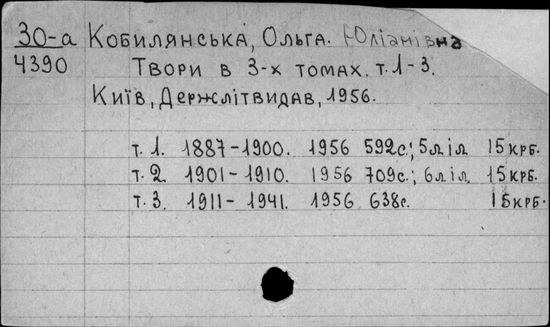 30-а Кобилянська, Ольга. Юліанівна
4390 Твори в 3-х томах. т.1-3.
Київ, Держлітвидав, 1956.
т. 1. 1887-1900. 1956 592с.; 5л іл 15 крб.
т. 2. 1901-1910. 1956 709с.; 6л іл. 15 крб.
т. 3. 1911-1941. 1956 638с. 15 крб.